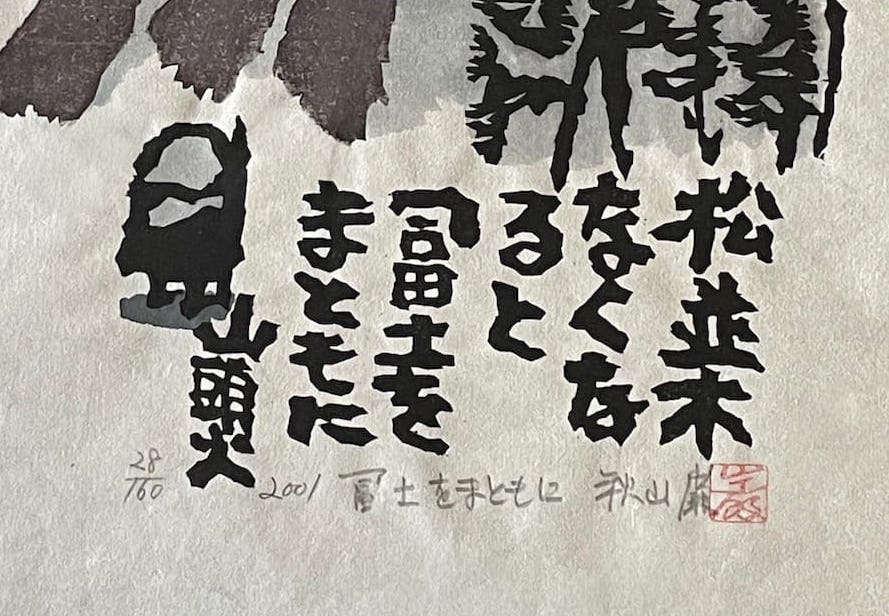 松並木
なくな
ると
冨士を
まともに
山頭火
28/160 2001 冨士をまともに 秋山巌